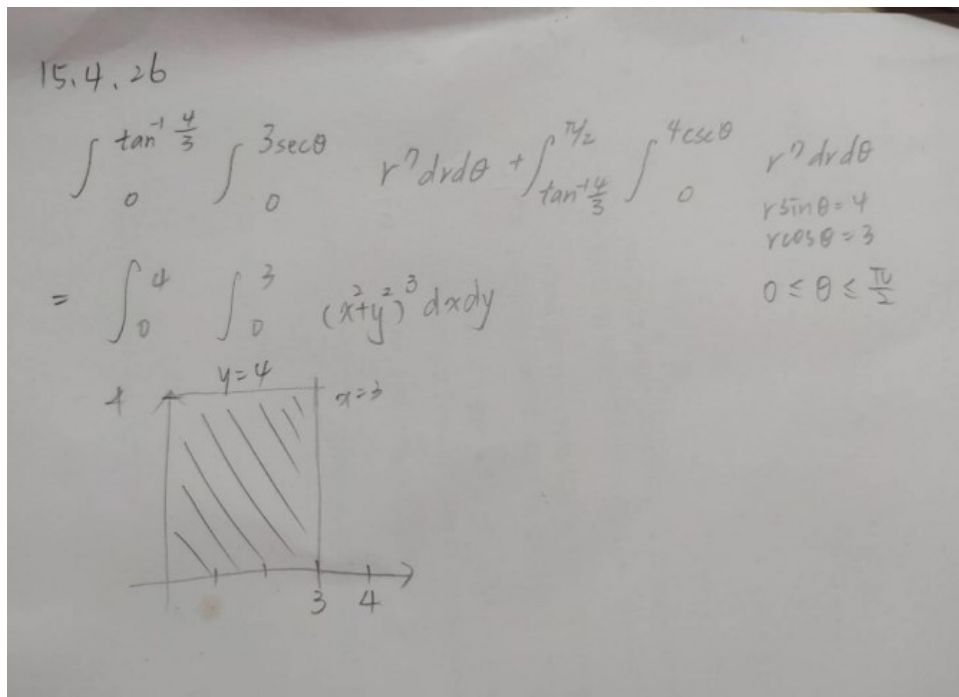 15.4.26
∫₀^{tan⁻¹ 4/3} ∫₀^{3secθ} r⁷ drdθ + ∫_{tan⁻¹ 4/3}^{π/2} ∫₀^{4cscθ} r⁷ drdθ
rsinθ=4
rcosθ=3
0 ≤ θ ≤ π/2
= ∫₀⁴ ∫₀³ (x²+y²)³ dxdy
y=4
4
x=3
3 4